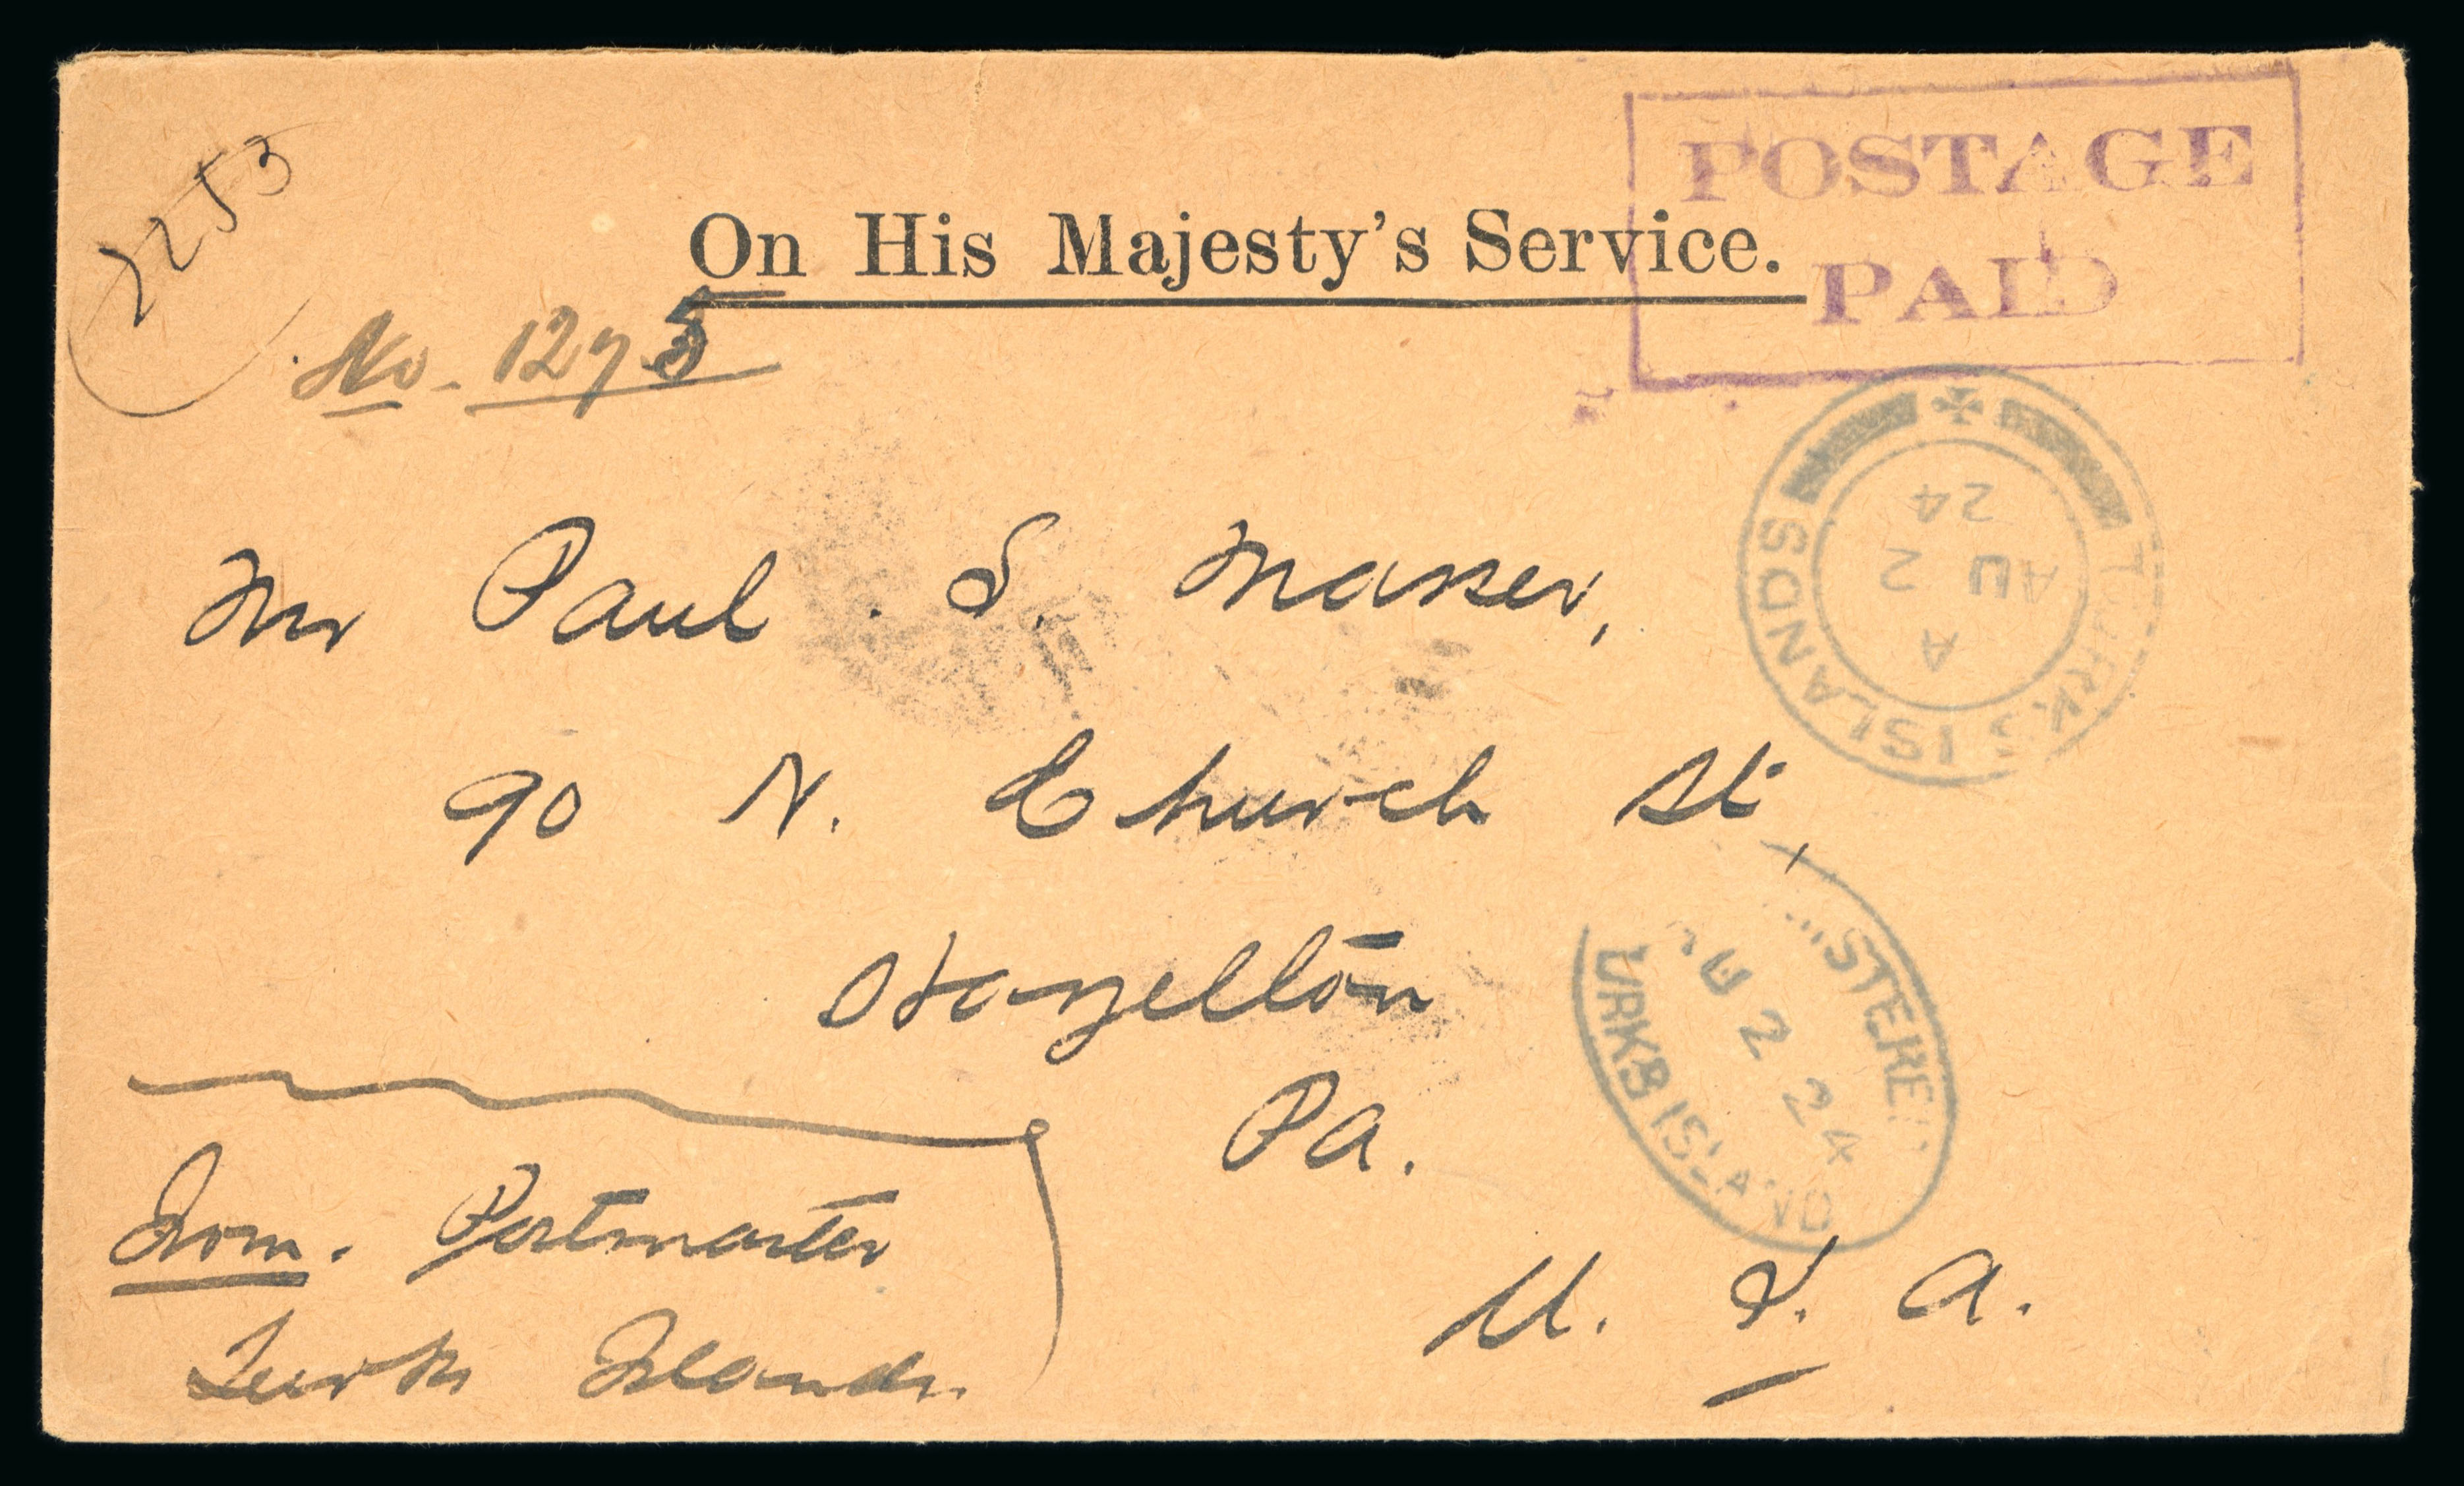 POSTAGE
PAID
2253
On His Majesty's Service.
No. 1275
Mr Paul S. Masser,
90 N. Church St,
Hazelton
Pa.
U. S. A.
From. Postmaster
Turks Islands.
TURKS ISLANDS
A
AU 2
24
ISTERE
AU 2 24
URKS ISLAND